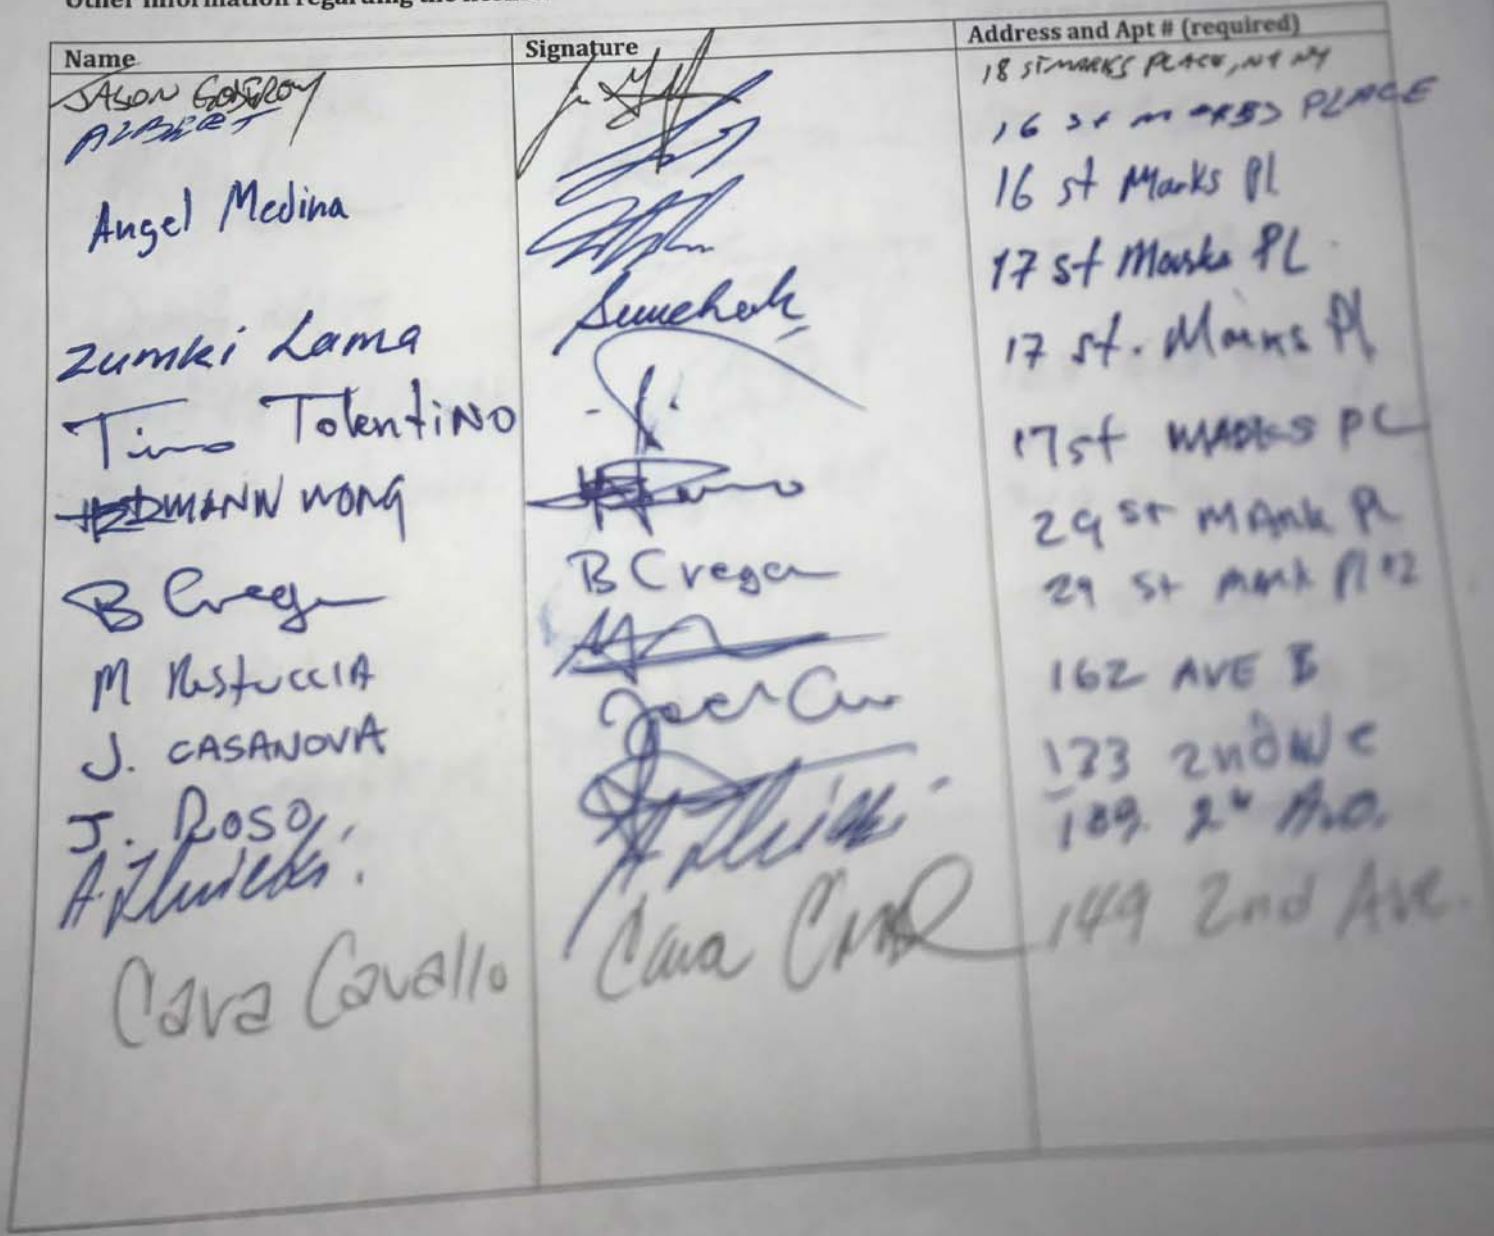 Other information regarding the
Name Signature Address and Apt # (required)
JASON GODFROY 18 ST MARKS PLACE, NY NY
ALBERT 16 St MARKS PLACE
Angel Medina 16 st Marks Pl
17 st Marks PL
Zumki Lama 17 st. Marks Pl
Tino TolentiNO 17 st MARKS PL
MANN WONG 29 ST MARK PL
B Cregan B Cregan 29 St Mark Pl #2
M RestucciA 162 AVE B
J. CASANOVA 133 2nd Ave
J. ROSO 189 2nd Ave.
A.
Cara Cavallo Cara 149 2nd Ave.